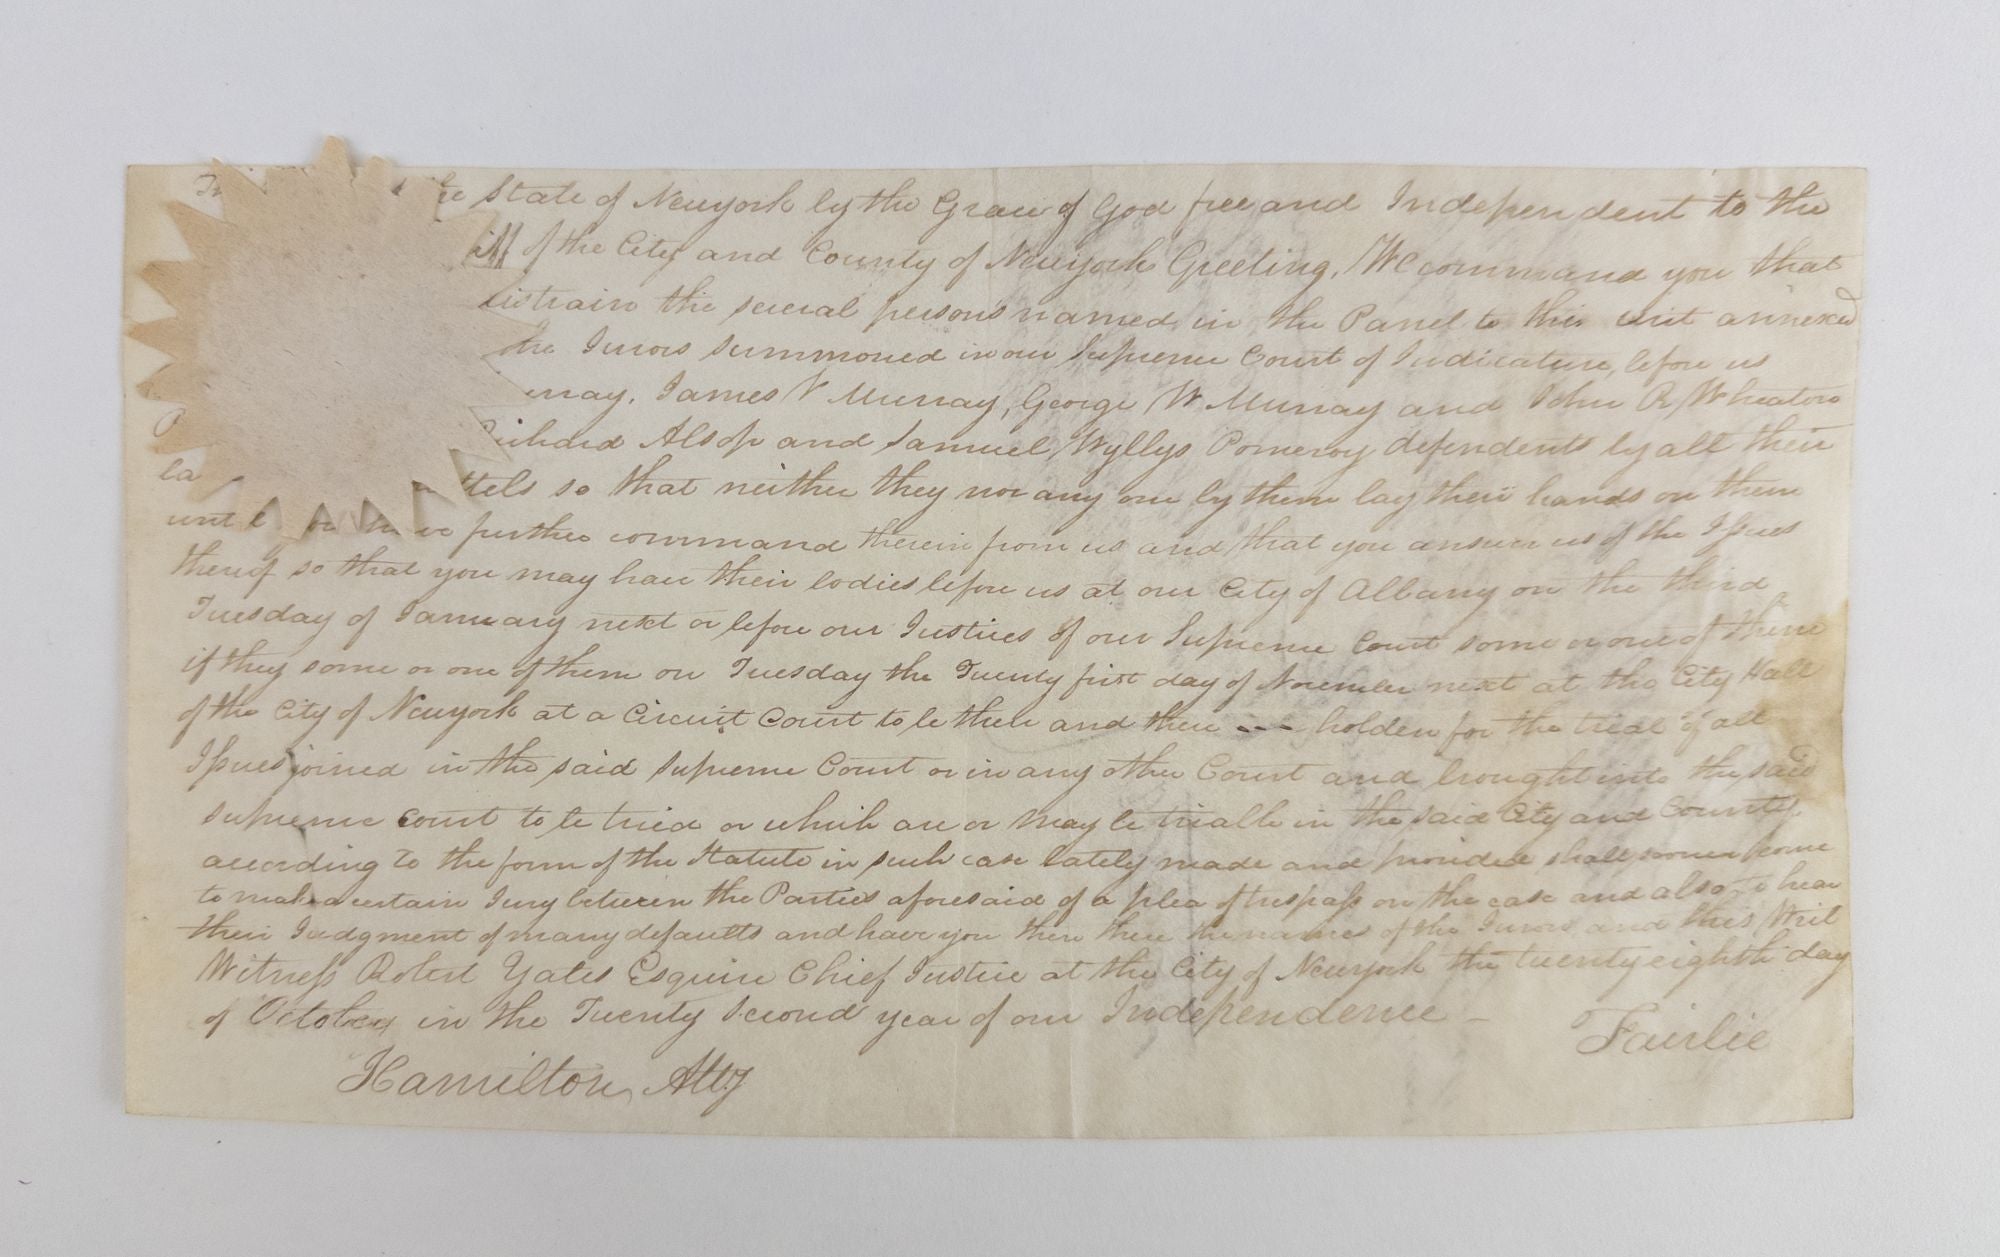 the State of Newyork by the Grace of God free and Independent to the
iff of the City and County of Newyork Greeting, We command you that
distrain the several persons named in the Panel to this writ annexed
the Jurors summoned in our Supreme Court of Judicature, before us
urray, James V Murray, George W Murray and John R Wheaton
Richard Alsop and Samuel Wyllys Pomeroy defendents by all their
la ttels so that neither they nor any one by them lay their hands on them
until have further command therein from us and that you answer us of the Issues
thereof so that you may have their bodies before us at our City of Albany on the third
Tuesday of January next or before our Justices of our Supreme Court some or one of them
if they some or one of them on Tuesday the Twenty first day of November next at the City Hall
of the City of Newyork at a Circuit Court to be then and there --- holden for the trial of all
Issues joined in the said Supreme Court or in any other Court and brought into the said
Supreme Court to be tried or which are or may be triable in the said City and County
according to the form of the Statute in such case lately made and provided shall sooner come
to make a certain Jury between the Parties aforesaid of a plea of trespass on the case and also to hear
their Judgment of many defaults and have you then there the names of the Jurors and this Writ
Witness Robert Yates Esquire Chief Justice at the City of Newyork the twenty eighth day
of October in the Twenty Second year of our Independence –
Fairlie
Hamilton, Atty